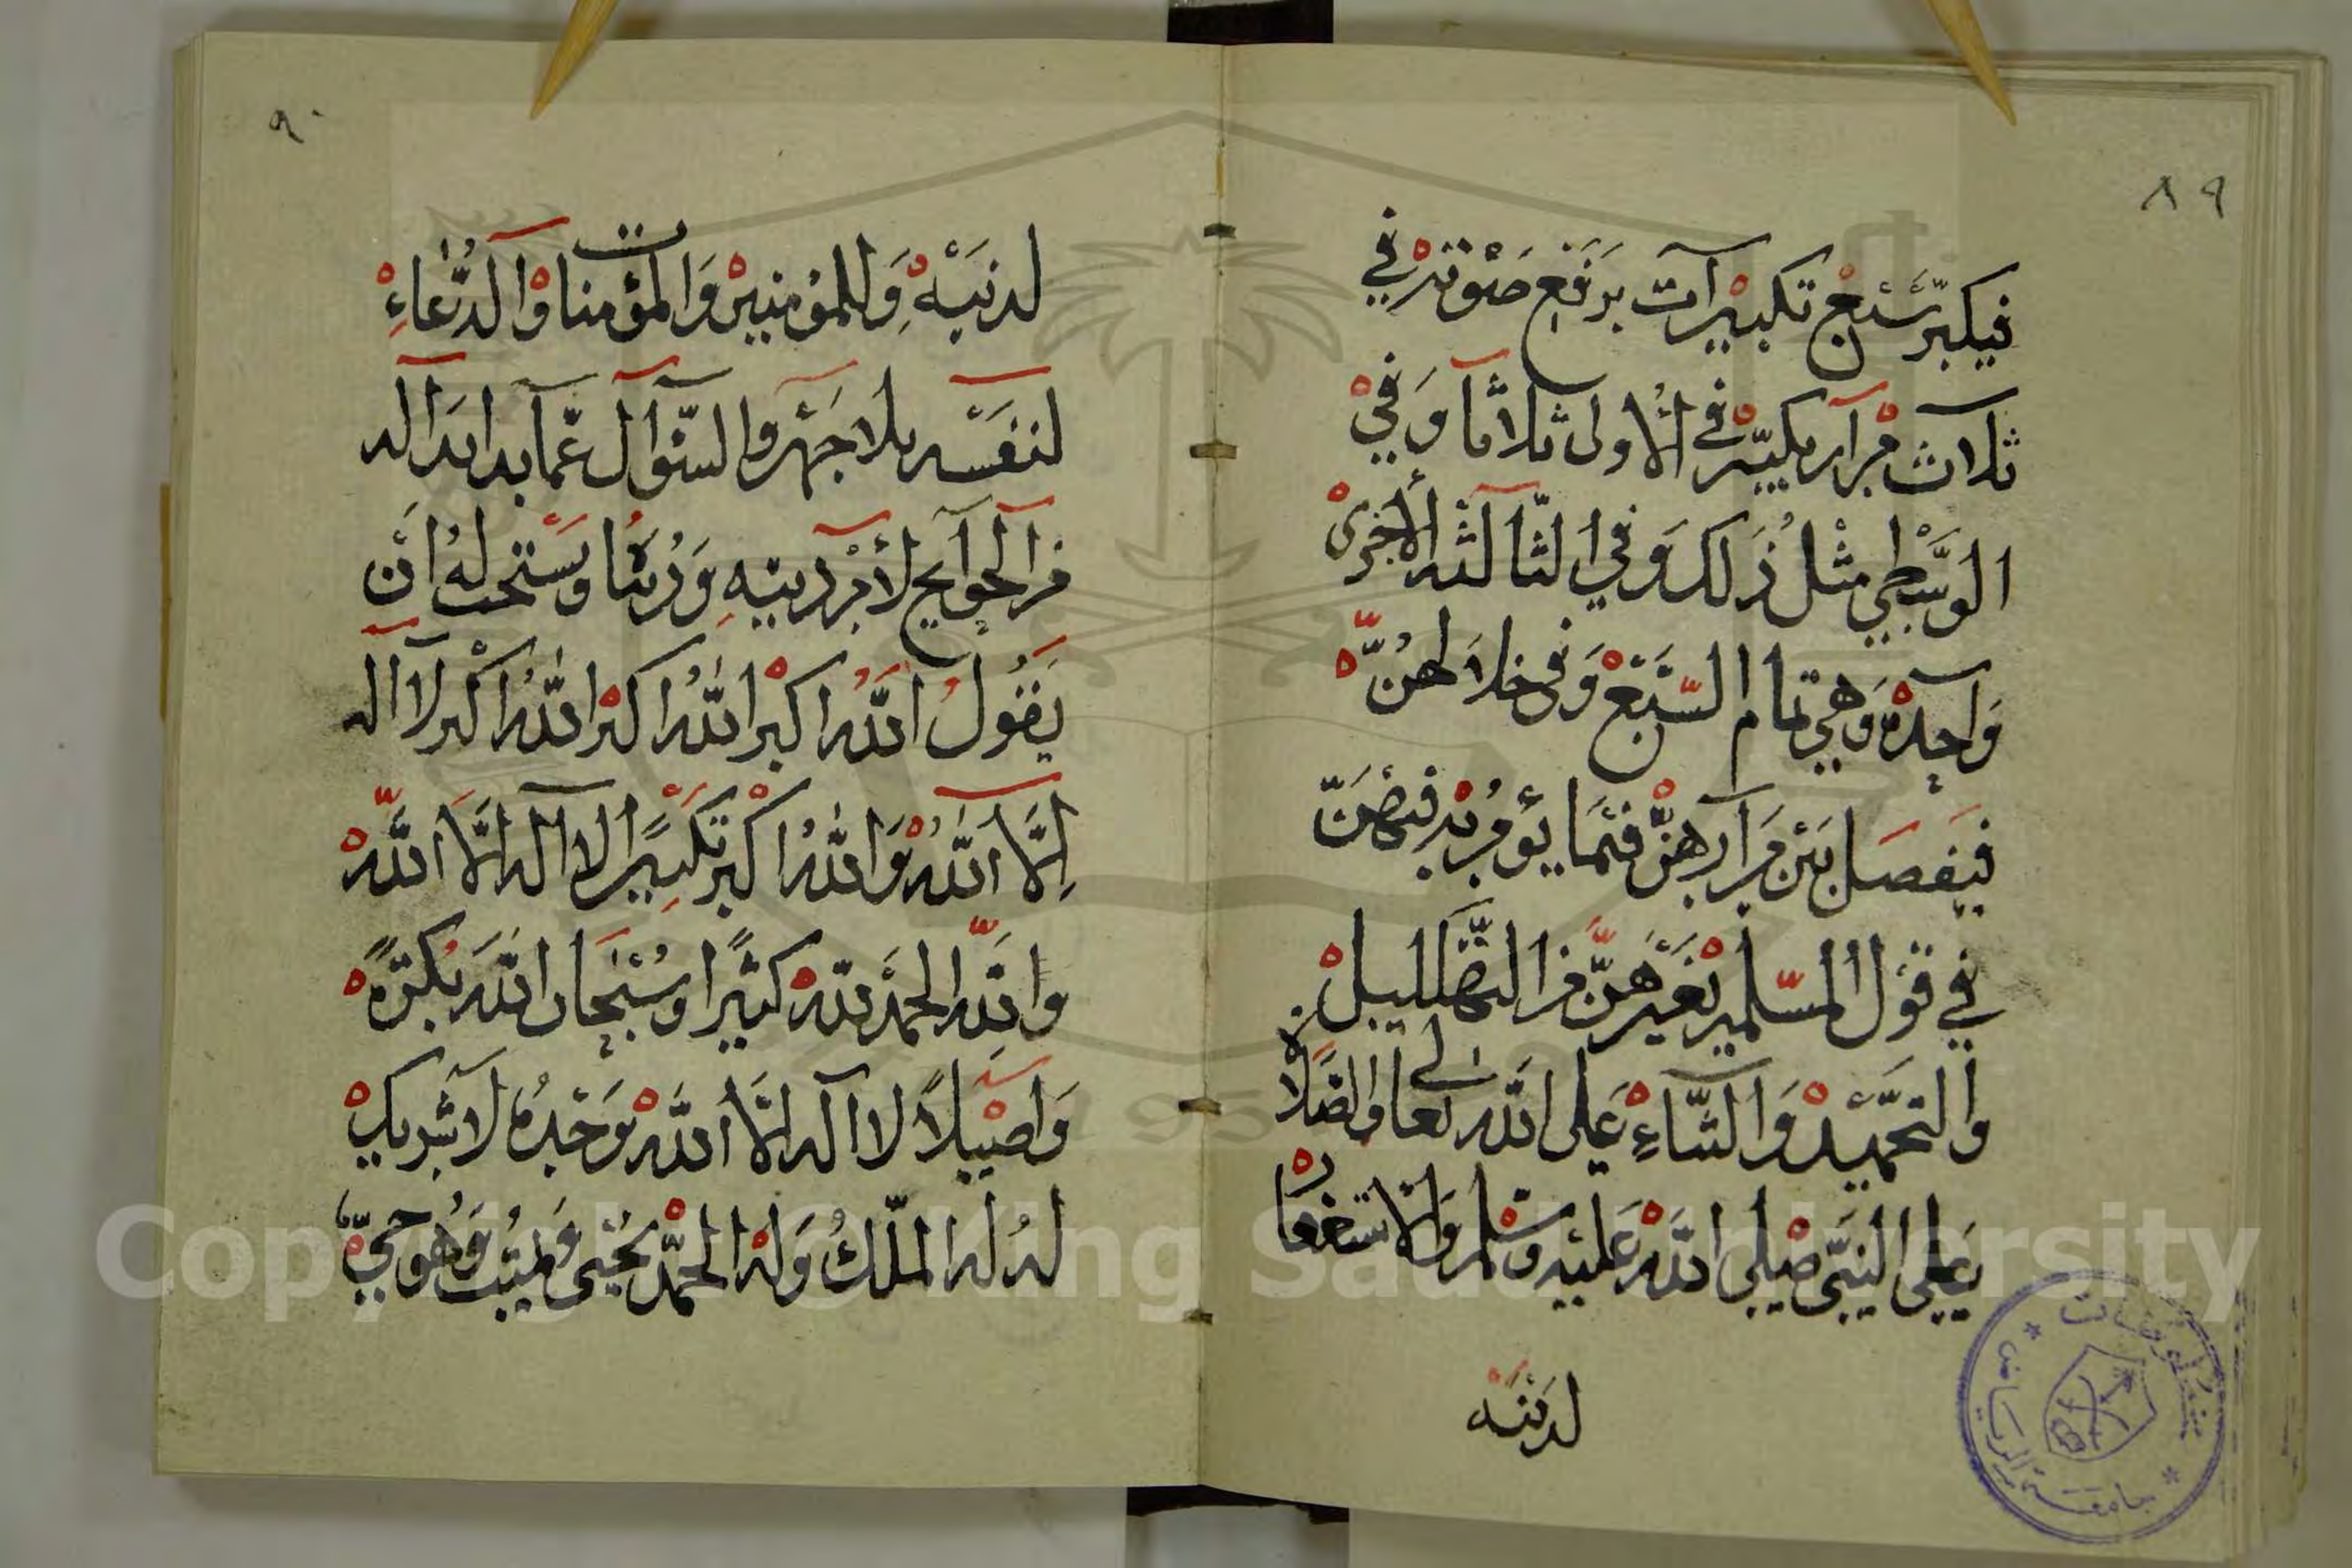 ٨٩
فيكبر سبع تكبيرات يرفع صوته في
ثلاث مرار يكبر في الاولى ثلاثا وفي
الوسطى مثل ذلك وفي الثالثه الاخرى
واحدة وهي تمام السبع وفي خلالهن
فيفصل بين مرارهن فثما يؤمر به فيهن
في قول المسلمين بغيرهن من التهلليل
والتحميد والثناء على الله تعالى والصلاة
على النبي صلى الله عليه وسلم والاستغفار
لدينه
٩٠
لدنبه وللمؤمنين والمؤمنات والدعاء
لنفسه بلا جهر والسؤال عما بدا بدا له
من الحوايج لأمر دينه ودنيا ويستحب له ان
يقول الله اكبر الله اكبر الله اكبر لا اله
إلا الله والله اكبر تكبيرا لا اله الا الله
والله الحمد لله كثيرا وسبحان الله بكرة
واصيلا لا اله الا الله وحده لا شريك
له له الملك وله الحمد يحيى ويميت وهو حي
Copyright © King Saud University
1957
جامعة الرياض